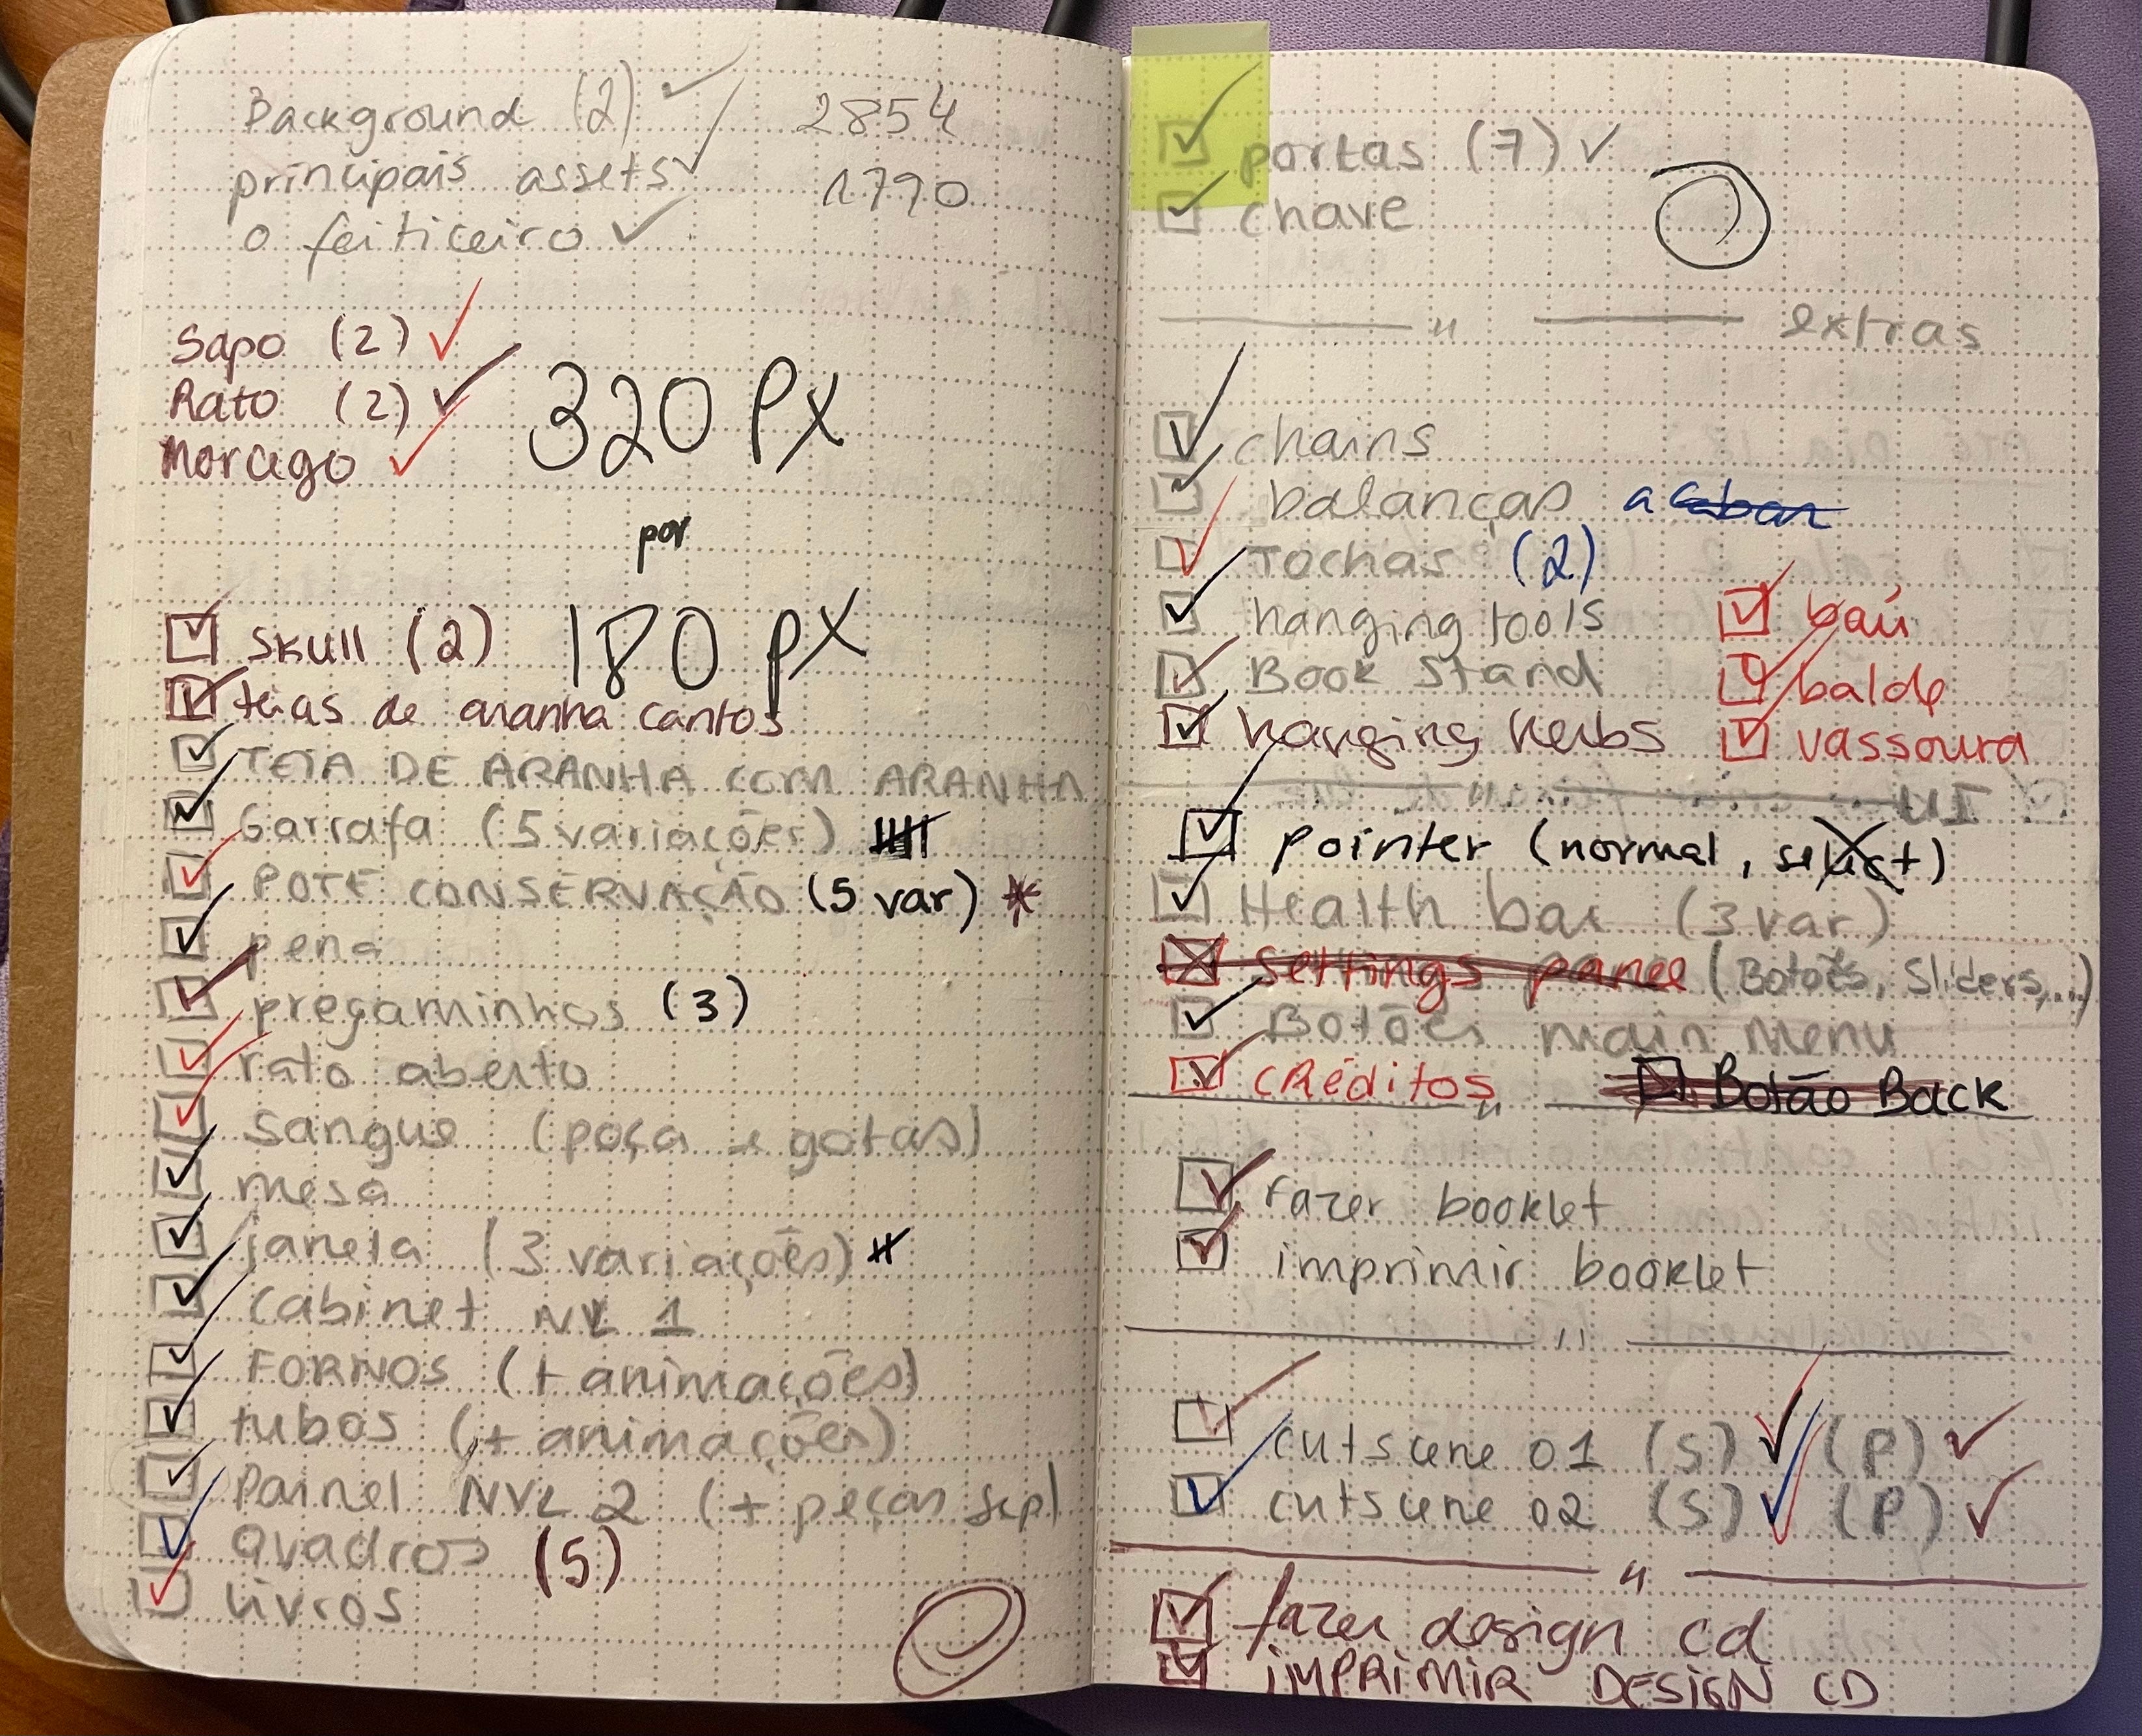 Background (2) ✓ 2854
principais assets ✓ 1790
o feiticeiro ✓
Sapo (2) ✓
Rato (2) ✓
Morcego ✓
320 Px
por
180 px
☑ Skull (2)
☑ teias de aranha cantos
☑ TEIA DE ARANHA COM ARANHA
☑ Garrafa (5 variações)
☑ POTE CONSERVAÇÃO (5 var) *
☑ pena
☑ pregaminhos (3)
☑ rato aberto
☑ Sangue (poça e gotas)
☑ mesa
☑ janela (3 variações)
☑ Cabinet NVL 1
☑ FORNOS (+ animações)
☑ tubos (+ animações)
☑ Painel NVL 2 (+ peças sep)
☑ Quadros (5)
☑ livros
☑ portas (7) ✓
☑ chave
" extras
☑ chains
☑ balanças acabar
☑ Tochas (2)
☑ hanging tools
☑ Book Stand
☑ hanging herbs
☑ baú
☑ balde
☑ vassoura
" UI
☑ pointer (normal, select)
☑ Health bar (3 var)
☒ Settings panel (Botões, Sliders,...)
☑ Botões main Menu
☑ CRéditos
☒ Botão Back
"
☑ fazer booklet
☑ imprimir booklet
"
☑ cutscene 01 (S) ✓ (P) ✓
☑ cutscene 02 (S) ✓ (P) ✓
"
☑ fazer design cd
☑ IMPRIMIR DESIGN CD